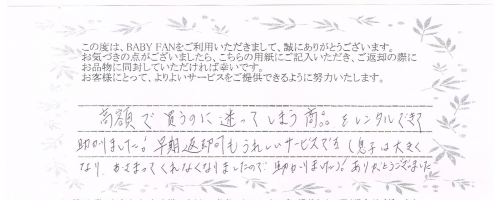 この度は、BABY FANをご利用いただきまして、誠にありがとうございます。
お気づきの点がございましたら、こちらの用紙にご記入いただき、ご返却の際に
お品物に同封していただければ幸いです。
お客様にとって、よりよいサービスをご提供できるように努力いたします。
高額で買うのに迷ってしまう商品をレンタルできて
助かりました。早期返却可もうれしいサービスです(息子は大きく
なり、おさまってくれなくなりましたので助かりました)。ありがとうございました